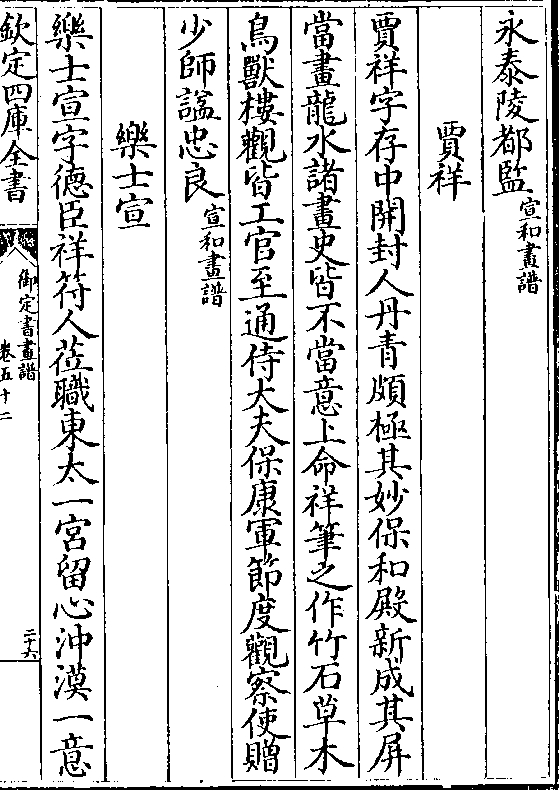 永泰陵都監宣和畫譜
賈祥
賈祥字存中開封人丹青頗極其妙保和殿新成其屏
當畫龍水諸畫史皆不當意上命祥筆之作竹石草木
鳥獸樓觀皆工官至通侍大夫保康軍節度觀察使贈
少師諡忠良宣和畫譜
樂士宣
樂士宣字德臣祥符人莅職東太一宮留心沖漠一意
欽定四庫全書
御定書畫譜
卷五十二
二十六